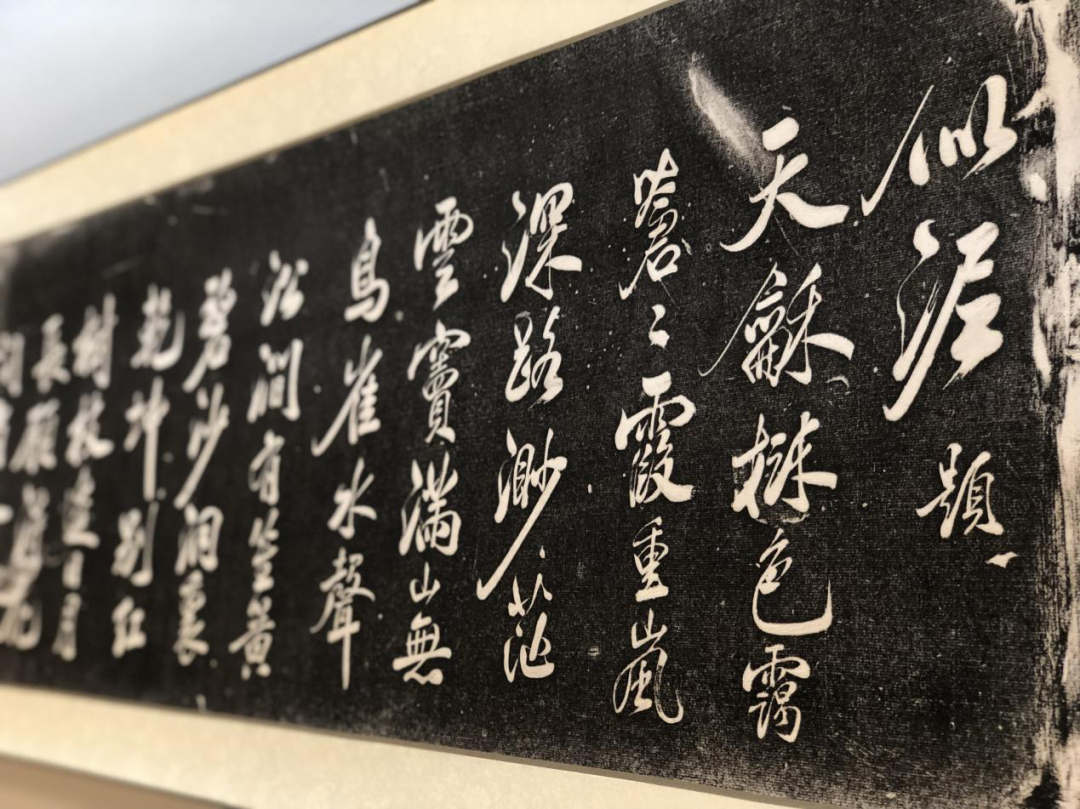 似 題
天龢樹色靄
蒼〻霞重嵐
深路渺茫
雲竇滿山無
鳥雀水聲
沿澗有笙簧
碧沙洞裏
乾坤別紅
樹枝邊日月
長願得花